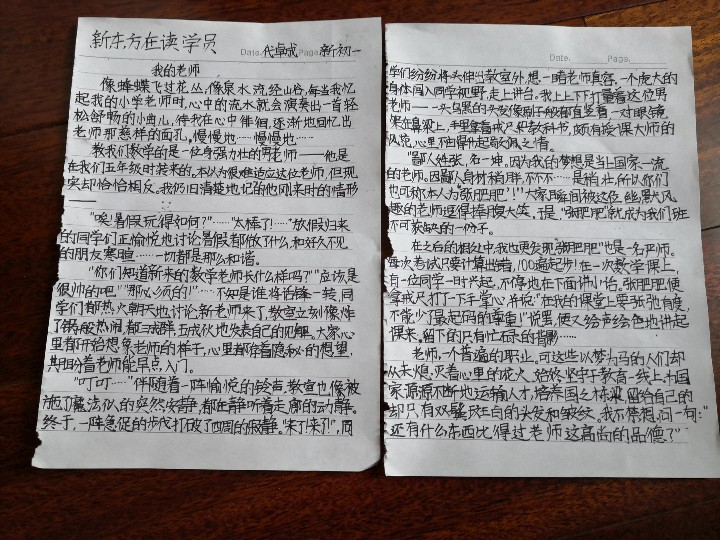 新东方在读学员
Date. 代卓成 Page. 新初一
我的老师
像蜂蝶飞过花丛,像泉水流经山谷,每当我忆
起我的小学老师时,心中的流水就会演奏出一首轻
松舒畅的小曲儿,待我在心中徘徊,逐渐地回忆出
老师那慈祥的面孔,慢慢地……慢慢地……
教我们数学的是一位身强力壮的男老师——他是
在我们五年级时转来的,本以为很难适应这位老师,但现
实却恰恰相反。我仍旧清楚地记得他刚来时的情形
——
"唉!暑假玩得如何?"……"太棒了!……"放假归来
的同学们正愉悦地讨论暑假都做了什么,和好久不见
的朋友寒暄……一切都是那么和谐。
"你们知道新来的数学老师长什么样吗?""应该是
很帅的吧""那必须的!"……不知是谁将话锋一转,同
学们都热火朝天地讨论新老师来了,教室立刻像炸
了锅般热闹,都三五成群五成伙地发表自己的见解。大家心
里都开始想象老师的样子,心里都存着隐秘的想望,
期盼着老师能早点入门。
"叮叮……"伴随着一阵愉悦的铃声,教室也像被
施了魔法似的突然安静,都在静听着走廊的动静。
终于,一阵急促的步伐打破了四周的寂静。"来了!来了!",同
Date. Page.
学们纷纷将头伸出教室外,想一睹老师真容。一个庞大的
身体闯入同学视野,走上讲台。我上上下下打量着这位男
老师——一头乌黑的头发像刷子般都直竖着,一对眼镜
架在鼻梁上,手里拿着戒尺和教科书,颇有授课大师的
风范,心里不由得升起了敬佩之情。
"鄙人姓张,名一坤。因为我的梦想是当上国家一流
的老师。因鄙人身材稍胖,不不不……是稍壮,所以你们
也可称本人为'张肥肥'!"大家瞬间被这位幽默风
趣的老师逗得捧腹大笑,于是"张肥肥"就成为我们班
不可或缺的一份子。
在之后的相处中,我也更发现"张肥肥"也是一名严师。
每次考试只要计算出错,100遍起步!在一次数学课上,
有一位同学一时兴起,不停地在下面讲小话。张肥肥便
拿戒尺打了一下手掌心,并说:"在我的课堂上要张弛有度,
不能少了最起码的尊重!"说罢,便又绘声绘色地讲起
课来。留下的只有忙碌的背影……
老师,一个普遍的职业,可这些以梦为马的人们却
从未熄灭着心里的花火,始终坚守于教育一线上,十国
家源源不断地运输人才,培养国之栋梁,留给自己的
却只有双鬓灰白的头发和皱纹。我不禁想问一句:"
还有什么东西比得过老师这高尚的品德?"